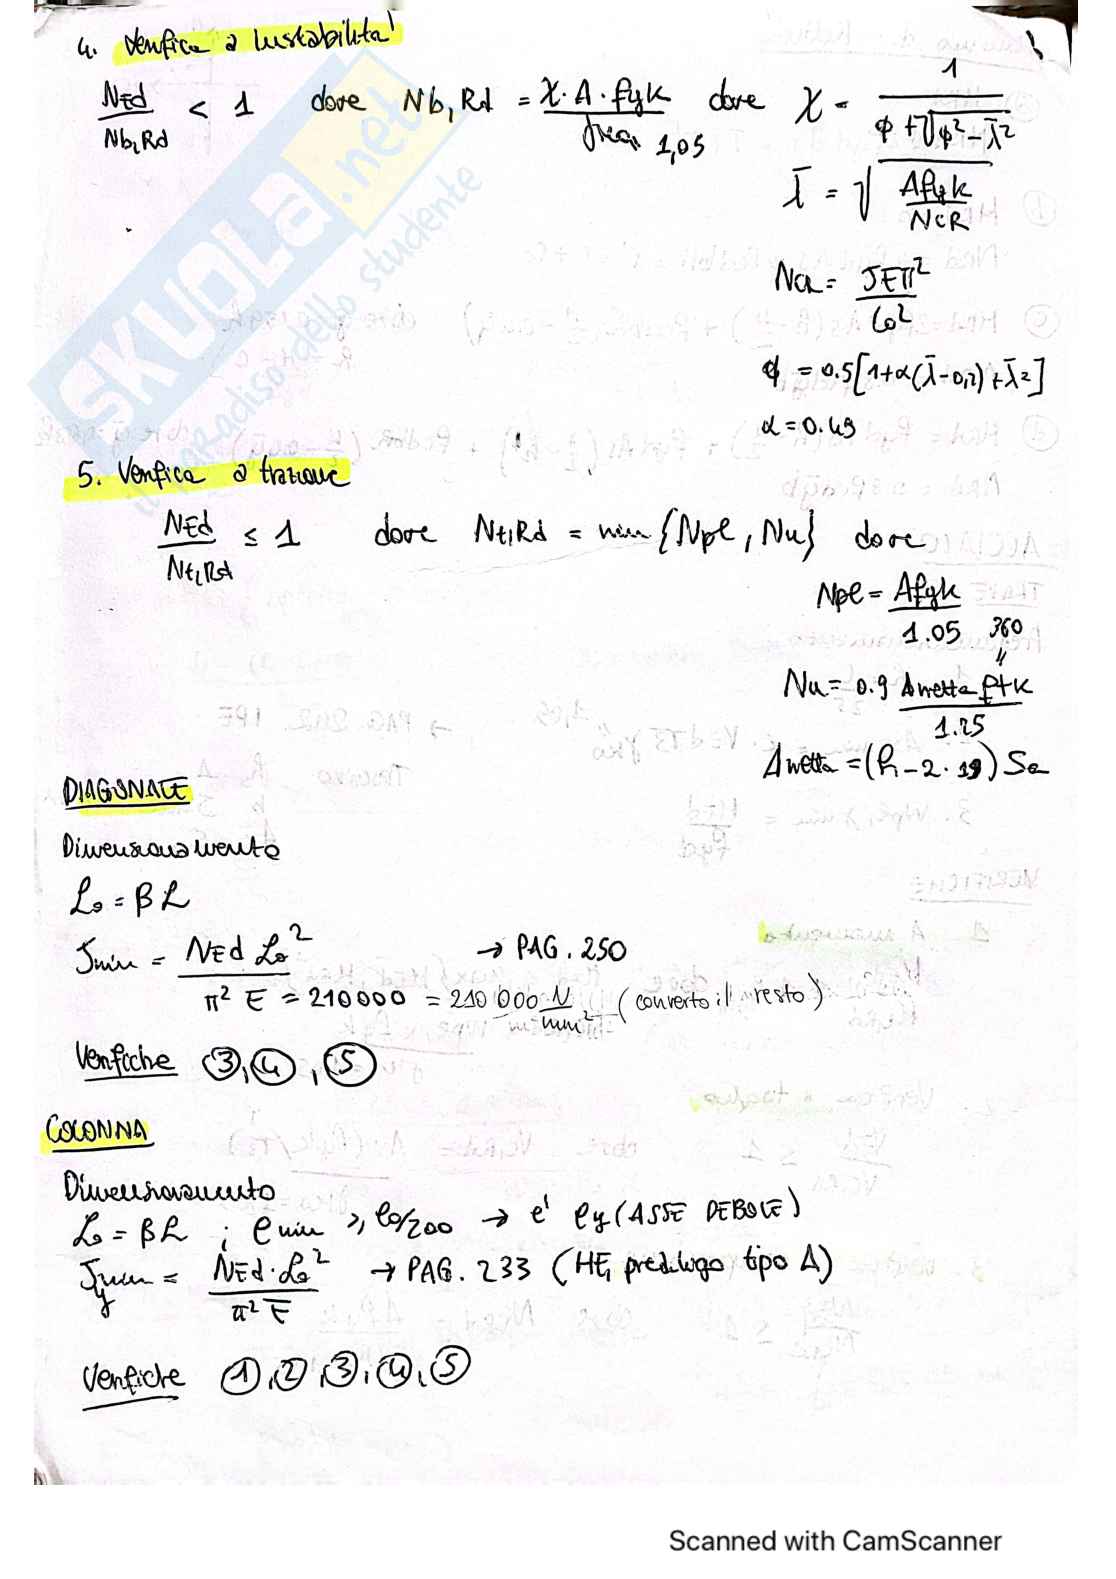 4. Verifica a Instabilità
NEd / Nb,Rd < 1 dove Nb,Rd = χ · A · fyk / 1,05 dove χ = 1 / (ϕ + √(ϕ² - λ̄²))
λ̄ = √(A fyk / NCR)
NCR = JEπ² / lo²
ϕ = 0.5[1+α(λ̄-0,2)+λ̄²]
α = 0.49
5. Verifica a trazione
NEd / Nt,Rd ≤ 1 dove Nt,Rd = min {Npl, Nu} dove
Npl = A fyk / 1.05
360
Nu = 0.9 Anetta ftk / 1.25
Anetta = (h - 2 · 19) Sa
DIAGONALE
Dimensionamento
Lo = βL
Jmin = NEd Lo² / π² E = 210000 = 210 000 N/mm² (converto il resto)
→ PAG. 250
Verifiche ③, ④, ⑤
COLONNA
Dimensionamento
Lo = βL ; ρmin ≥ lo/200 → è ρy (ASSE DEBOLE)
Jmin y = NEd · Lo² / π² E → PAG. 233 (HE, prediligo tipo A)
Verifiche ①, ②, ③, ④, ⑤
SKUOLA.net
il paradiso dello studente
Scanned with CamScanner